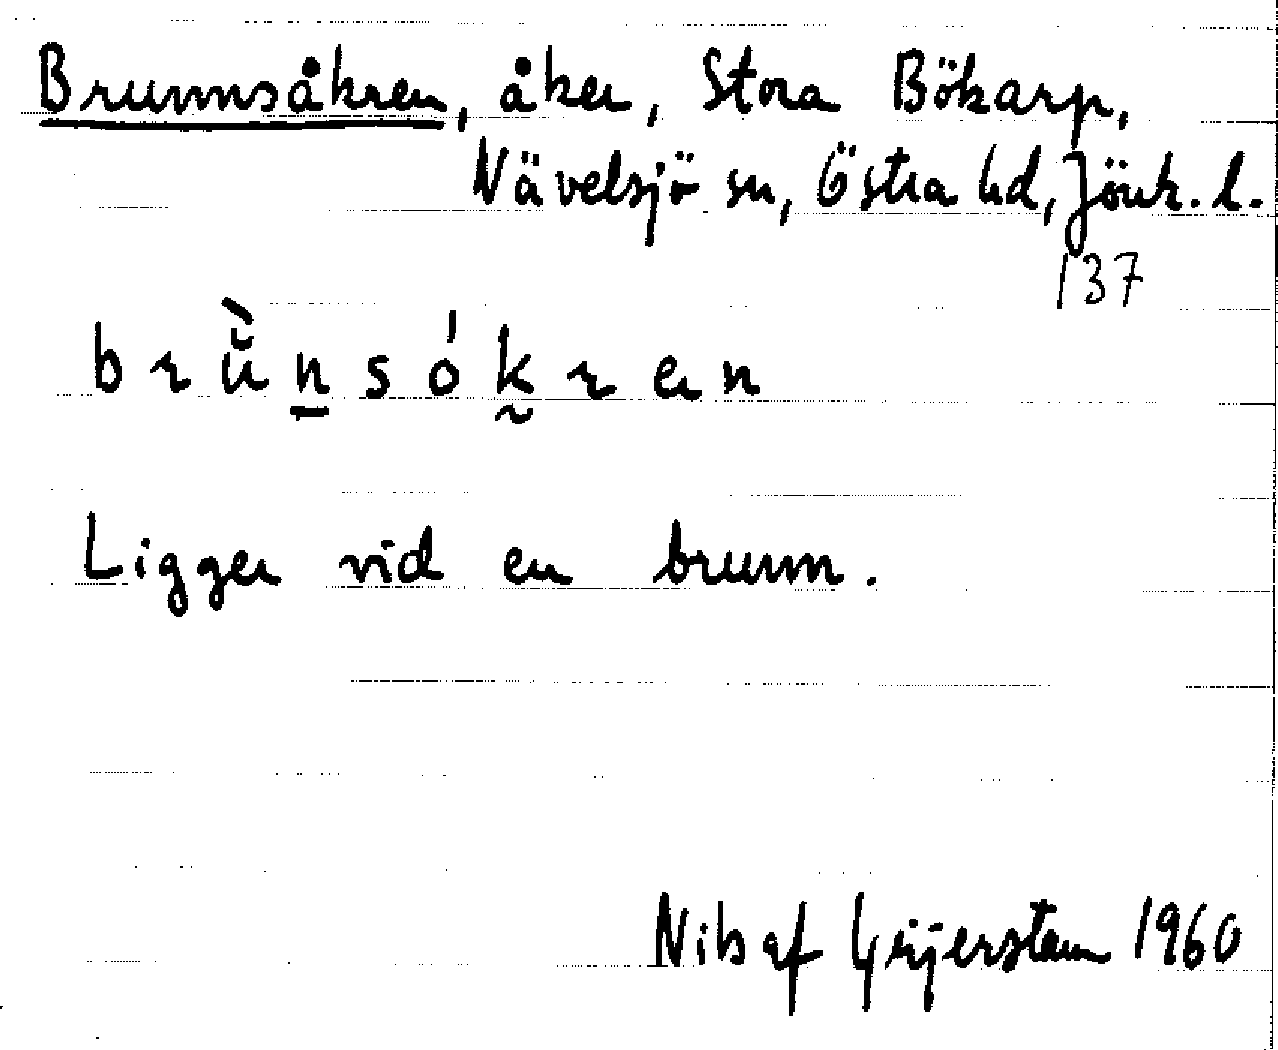 Brunnsåkren, åker, Stora Bökarp,
Nävelsjö sn, Östra hd, Jönk. l.
137
brùn̲sók̰ren
Ligger vid en brunn.
Nils af Geijerstam 1960